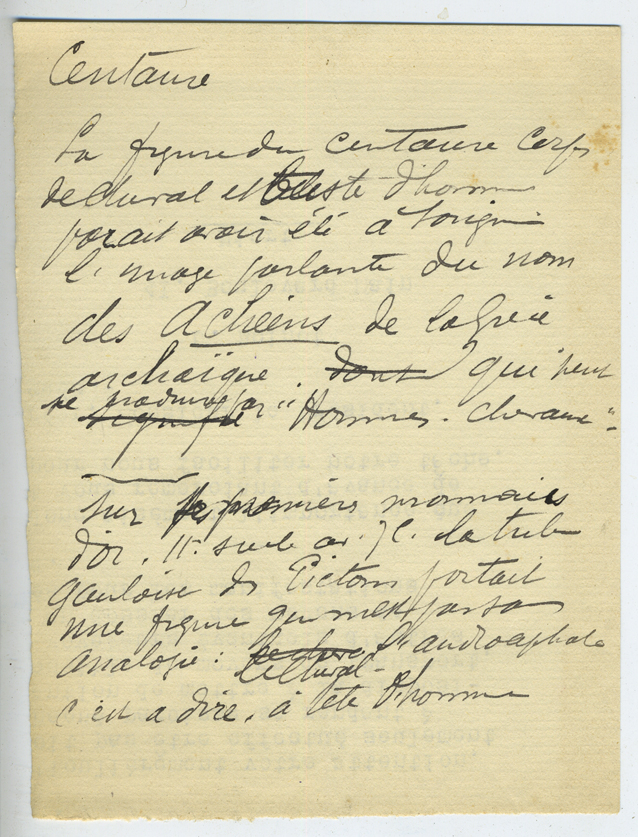 Centaure
La figure du centaure corps
de cheval et buste d'homme
parait avoir été à l'origine
l'image parlante du nom
des Achéens de la Grèce
archaïque. dont qui peut
se produire par signifie "Hommes-chevaux".
Sur les premiers monnaies
d'or. IIe siècle av. J C. la tribu
gauloise des Pictons portait
une figure qui n'est pas sans
analogie : le cheval l'androcéphale
c'est à dire, à tête d'homme